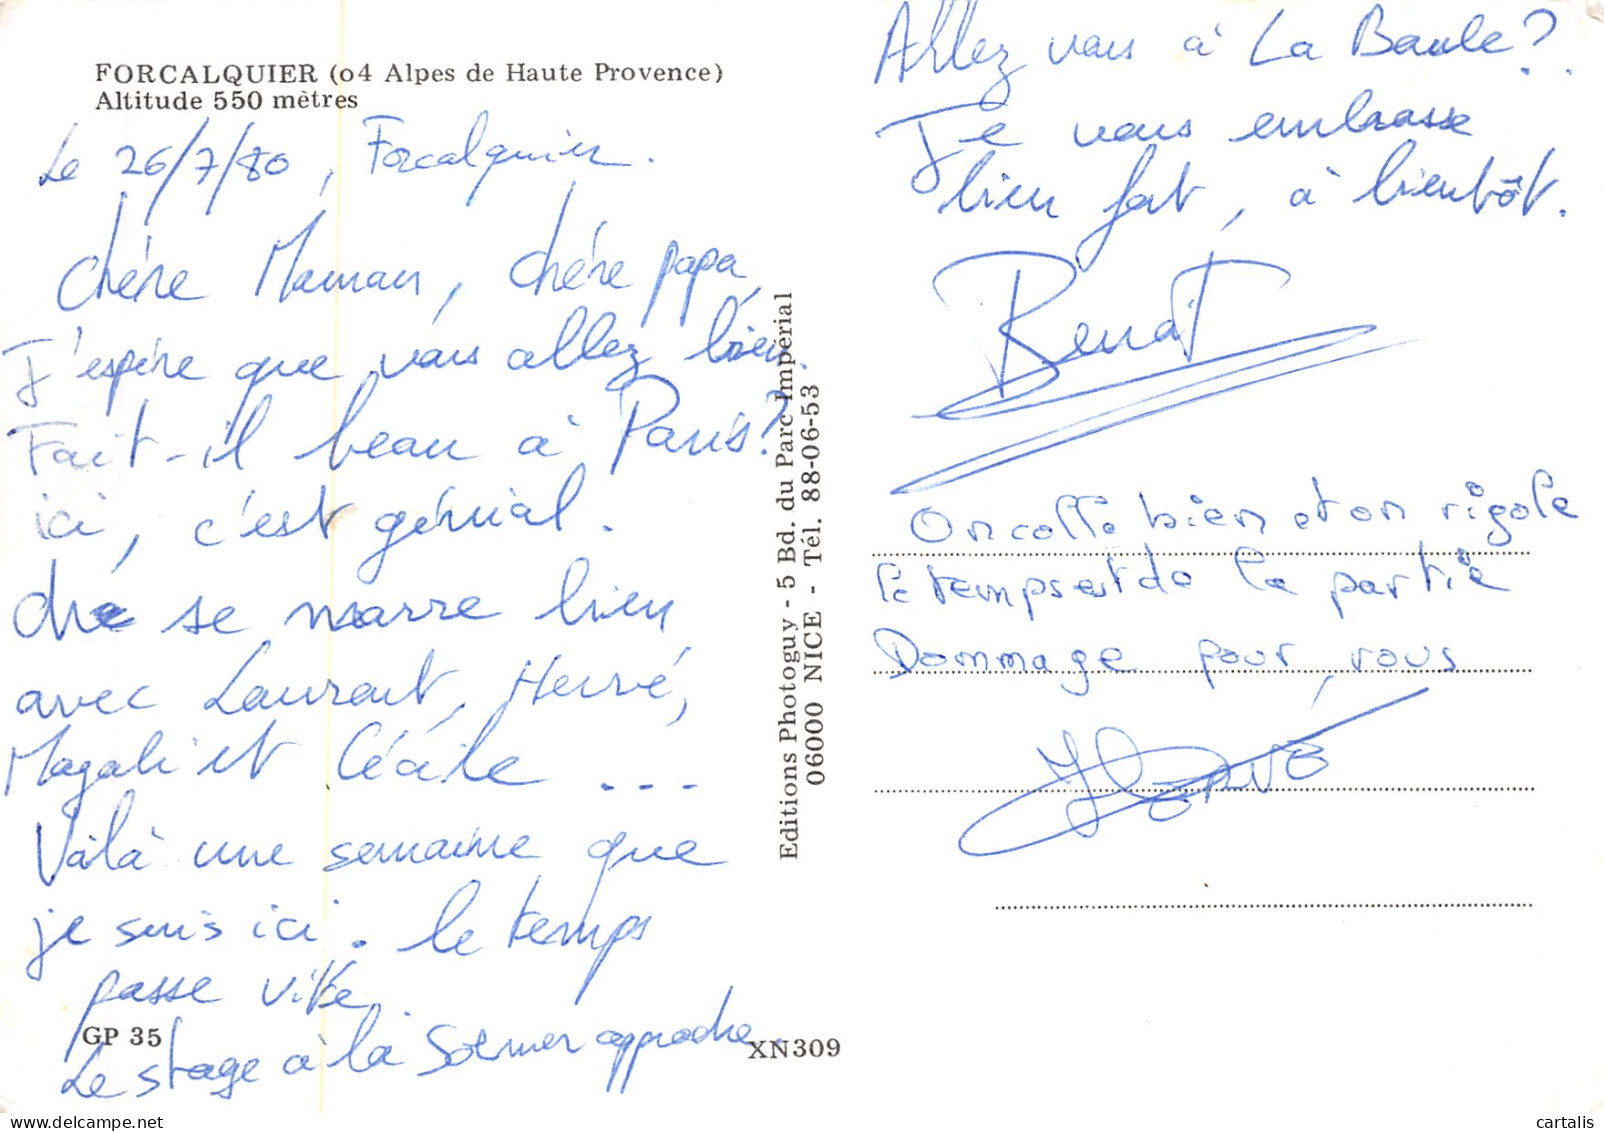 FORCALQUIER (04 Alpes de Haute Provence)
Altitude 550 mètres
Le 26/7/80, Forcalquier.
Chère Maman, chère papa,
J'espère que vous allez bien.
Fait-il beau à Paris?
ici, c'est génial.
se marre bien
avec Laurent, Hervé,
Magali et Cécile ...
Voilà une semaine que
je suis ici. le temps
passe vite
Le stage à la approche.
GP 35
XN309
Editions Photoguy - 5 Bd. du Parc Impérial
06000 NICE - Tél. 88-06-53
Allez vous à La Baule?
Je vous embrasse
bien fort, à bientôt.
Benoit
On colle bien et on rigole
le temps est de la partie
Dommage pour vous
Hervé
delcampe.net
cartalis